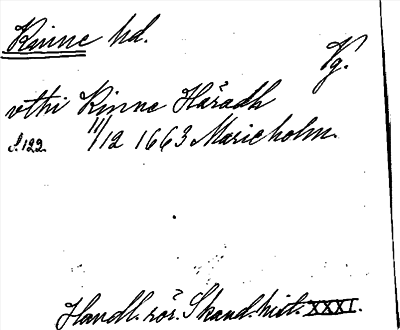 Kinne hd.
Vg.
vthi Kinne Häradh
s. 122. 11/12 1663 Marieholm.
Handl. rör. Skand. hist. XXXI.